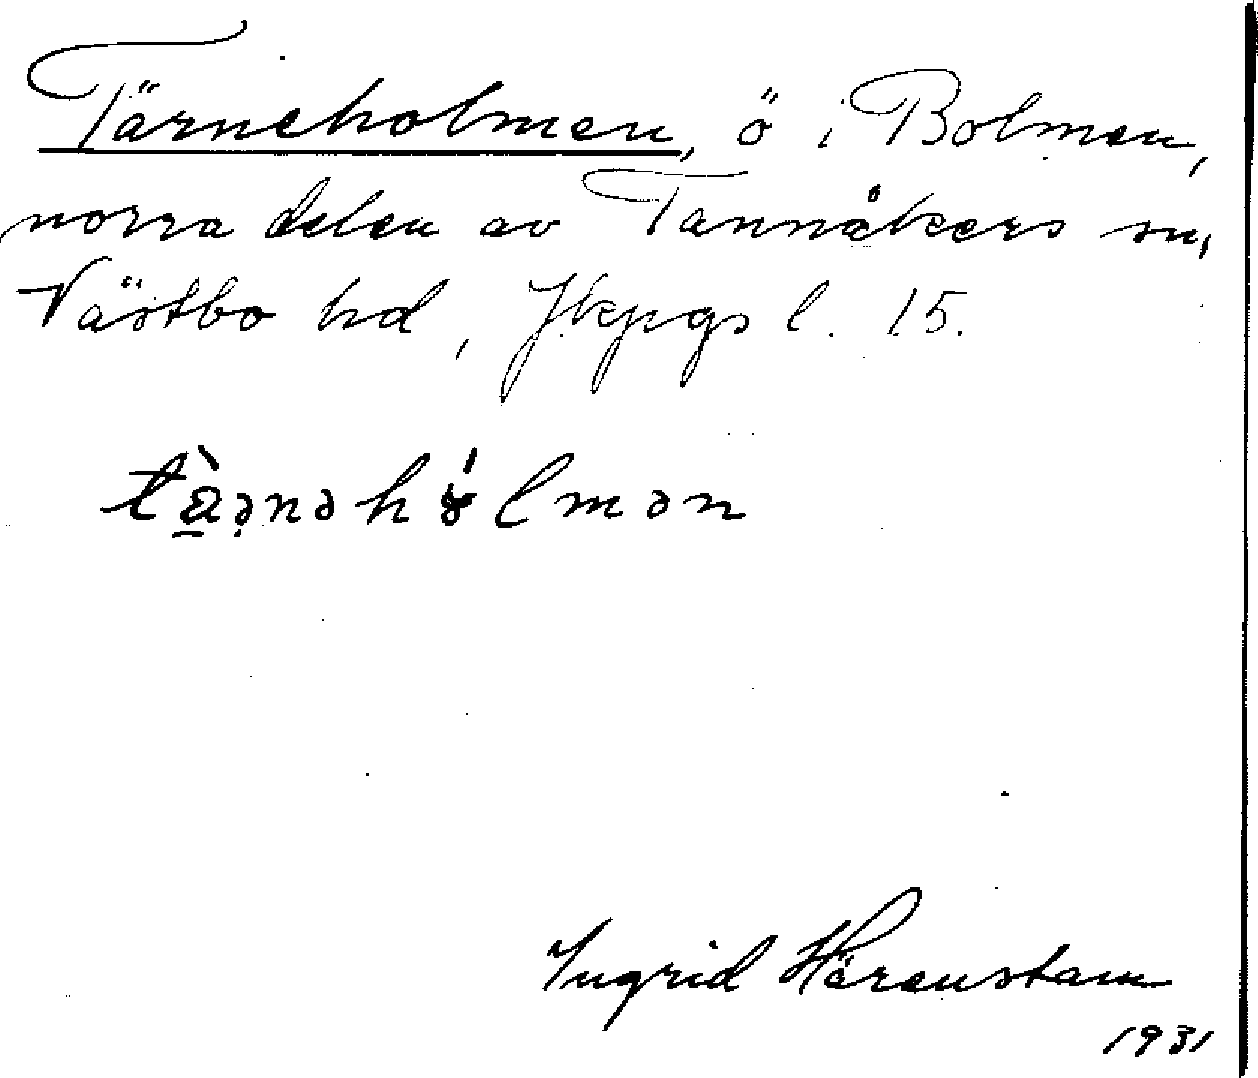 Tärneholmen, ö i Bolmen,
norra delen av Tannåkers sn,
Västbo hd, Jkpgs l. 15.
tà̱ə̣nəhɤ́lmən
Ingrid Hårenstam
1931